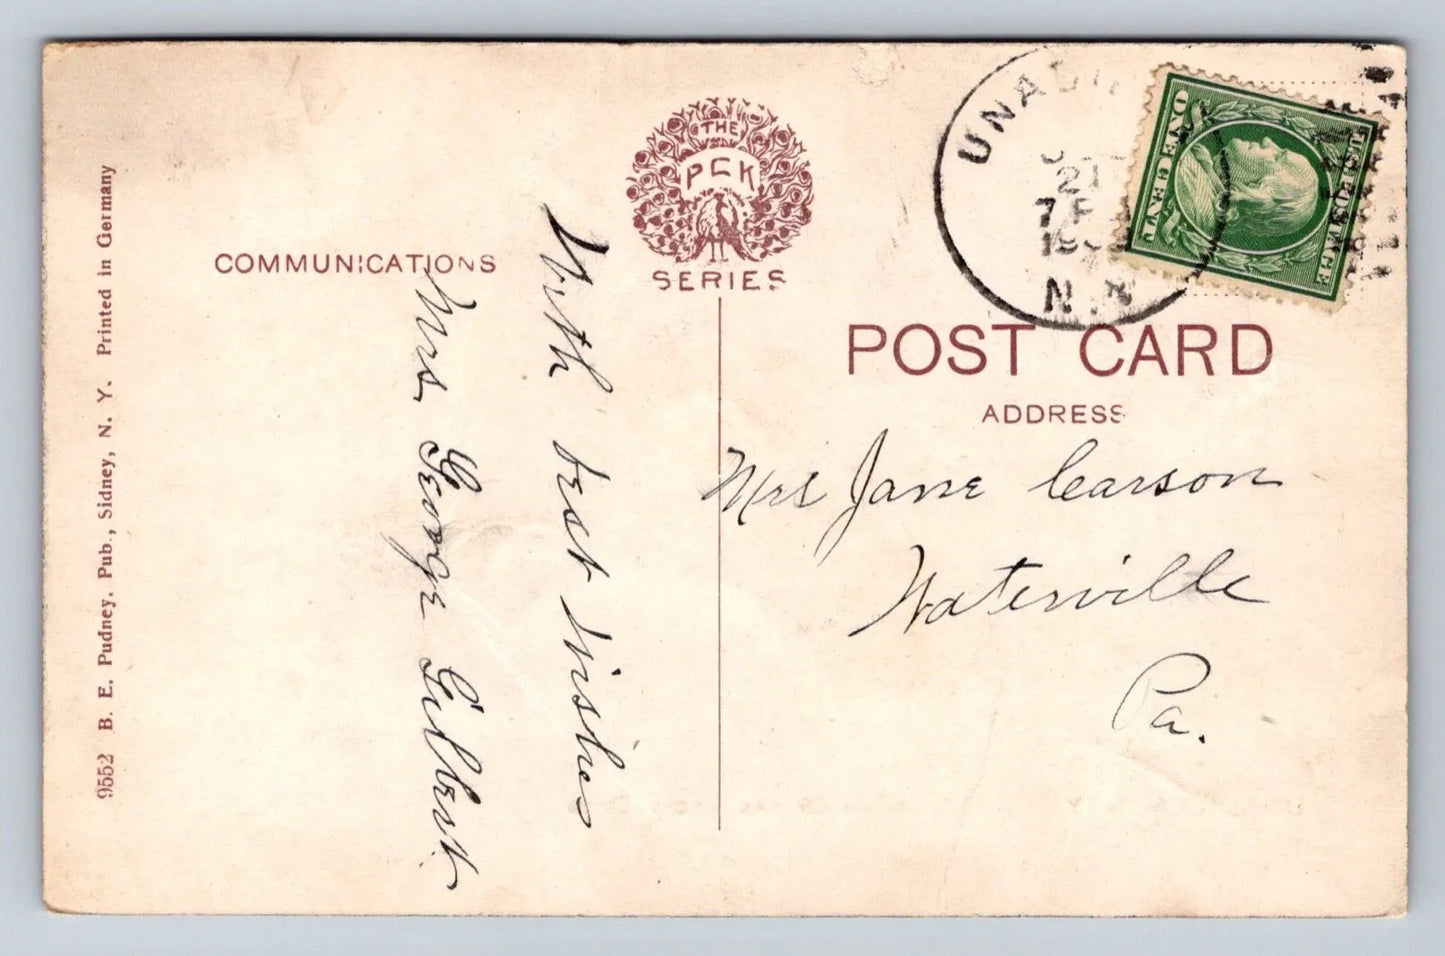 9552 B. E. Pudney, Pub., Sidney, N. Y. Printed in Germany
COMMUNICATIONS
With best wishes
Mrs George Gilbert
THE
PCK
SERIES
UNADI
21
7 P
N.Y.
ONE CENT
U.S. POSTAGE
POST CARD
ADDRESS
Mrs Jane Carson
Waterville
Pa.